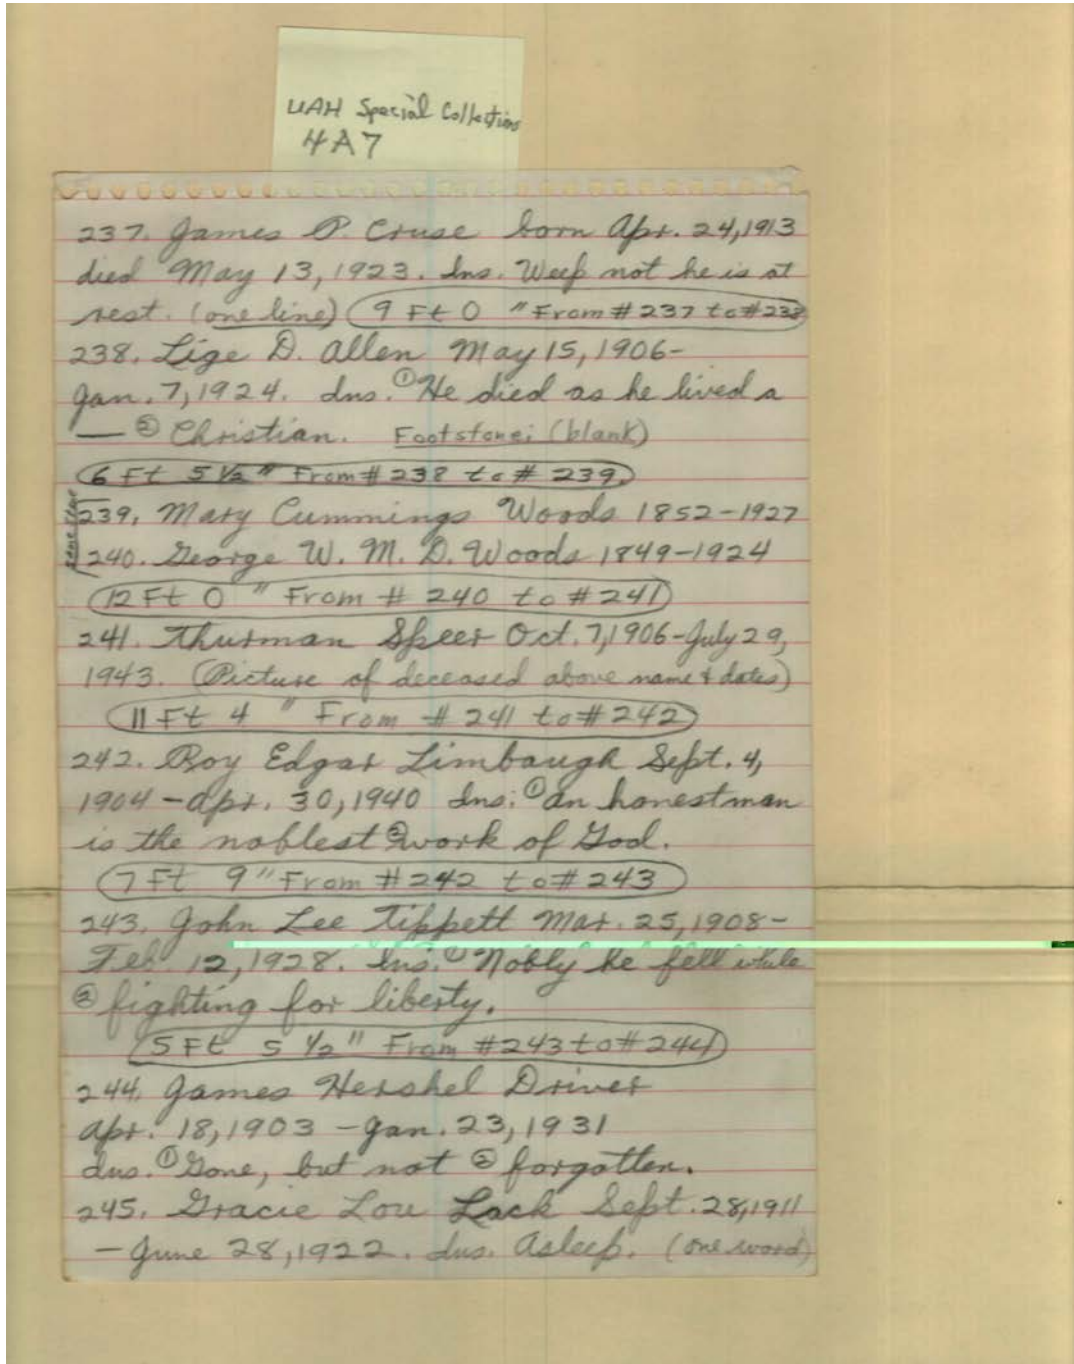 UAH Special Collections
4A7
237. James P. Cruse born Apr. 24, 1913
died May 13, 1923. Ins. Weep not he is at
rest. (one line) 9 Ft 0 " From # 237 to # 238
238. Lige D. Allen May 15, 1906-
Jan. 7, 1924. Ins. ① He died as he lived a
— ② Christian. Footstone: (blank)
6 Ft 5 1/2 " From # 238 to # 239.
239. Mary Cummings Woods 1852-1927
240. George W. M. D. Woods 1849-1924
12 Ft 0 " From # 240 to # 241
241. Thurman Speer Oct. 7, 1906-July 29,
1943. (Picture of deceased above name & dates)
11 Ft 4 " From # 241 to # 242
242. Roy Edgar Limbaugh Sept. 4,
1904-Apr. 30, 1940 Ins: ① An honest man
is the noblest ② work of God.
7 Ft 9 " From # 242 to # 243
243. John Lee Tippett Mar. 25, 1908-
Feb 12, 1928. Ins. ① Nobly he fell while
② fighting for liberty.
5 Ft 5 1/2 " From # 243 to # 244
244. James Hershel Driver
Apr. 18, 1903 - Jan. 23, 1931
Ins. ① Gone, but not ② forgotten.
245. Gracie Lou Lack Sept. 28, 1911
- June 28, 1922. Ins. Asleep. (one word)